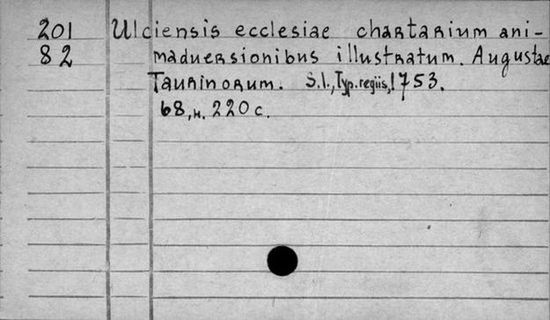 201 Ulciensis ecclesiae chartarium ani-
82 maduersionibus illustratum. Augustae
Taurinorum. S.l., Typ. regiis, 1753.
68, н. 220 с.